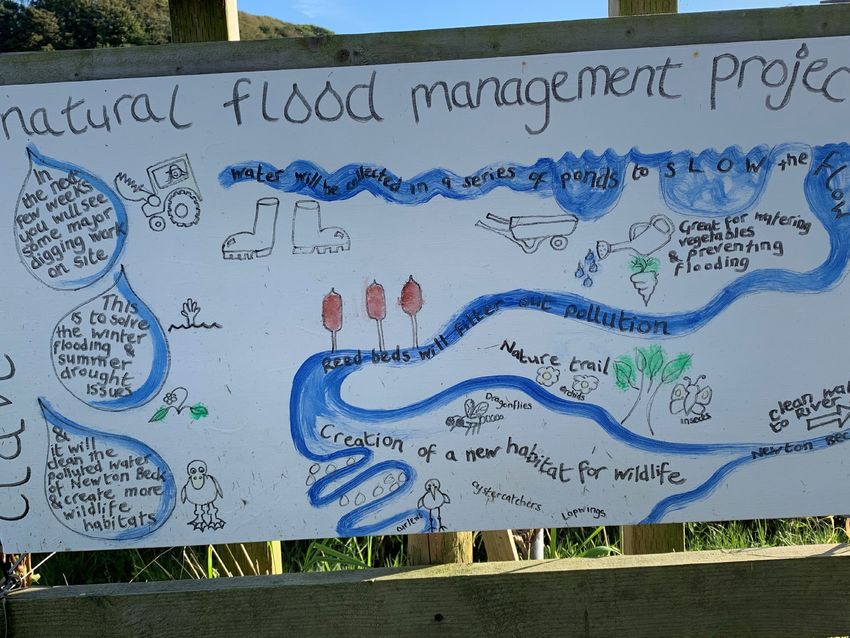 natural flood management projec
In
the next
few weeks
you will see
some major
digging work
on site
water will be collected in a series of ponds to SLOW the flow
Great for watering
vegetables
& preventing
flooding
This
is to solve
the winter
flooding &
summer
drought
issues
Reed beds will filter out pollution
Nature trail
orchids
insects
Dragonflies
&
it will
clean the
polluted water
at Newton Beck
& create more
wildlife
habitats
Creation of a new habitat for wildlife
oystercatchers
Lapwings
clean wat
to River
Newton Bec